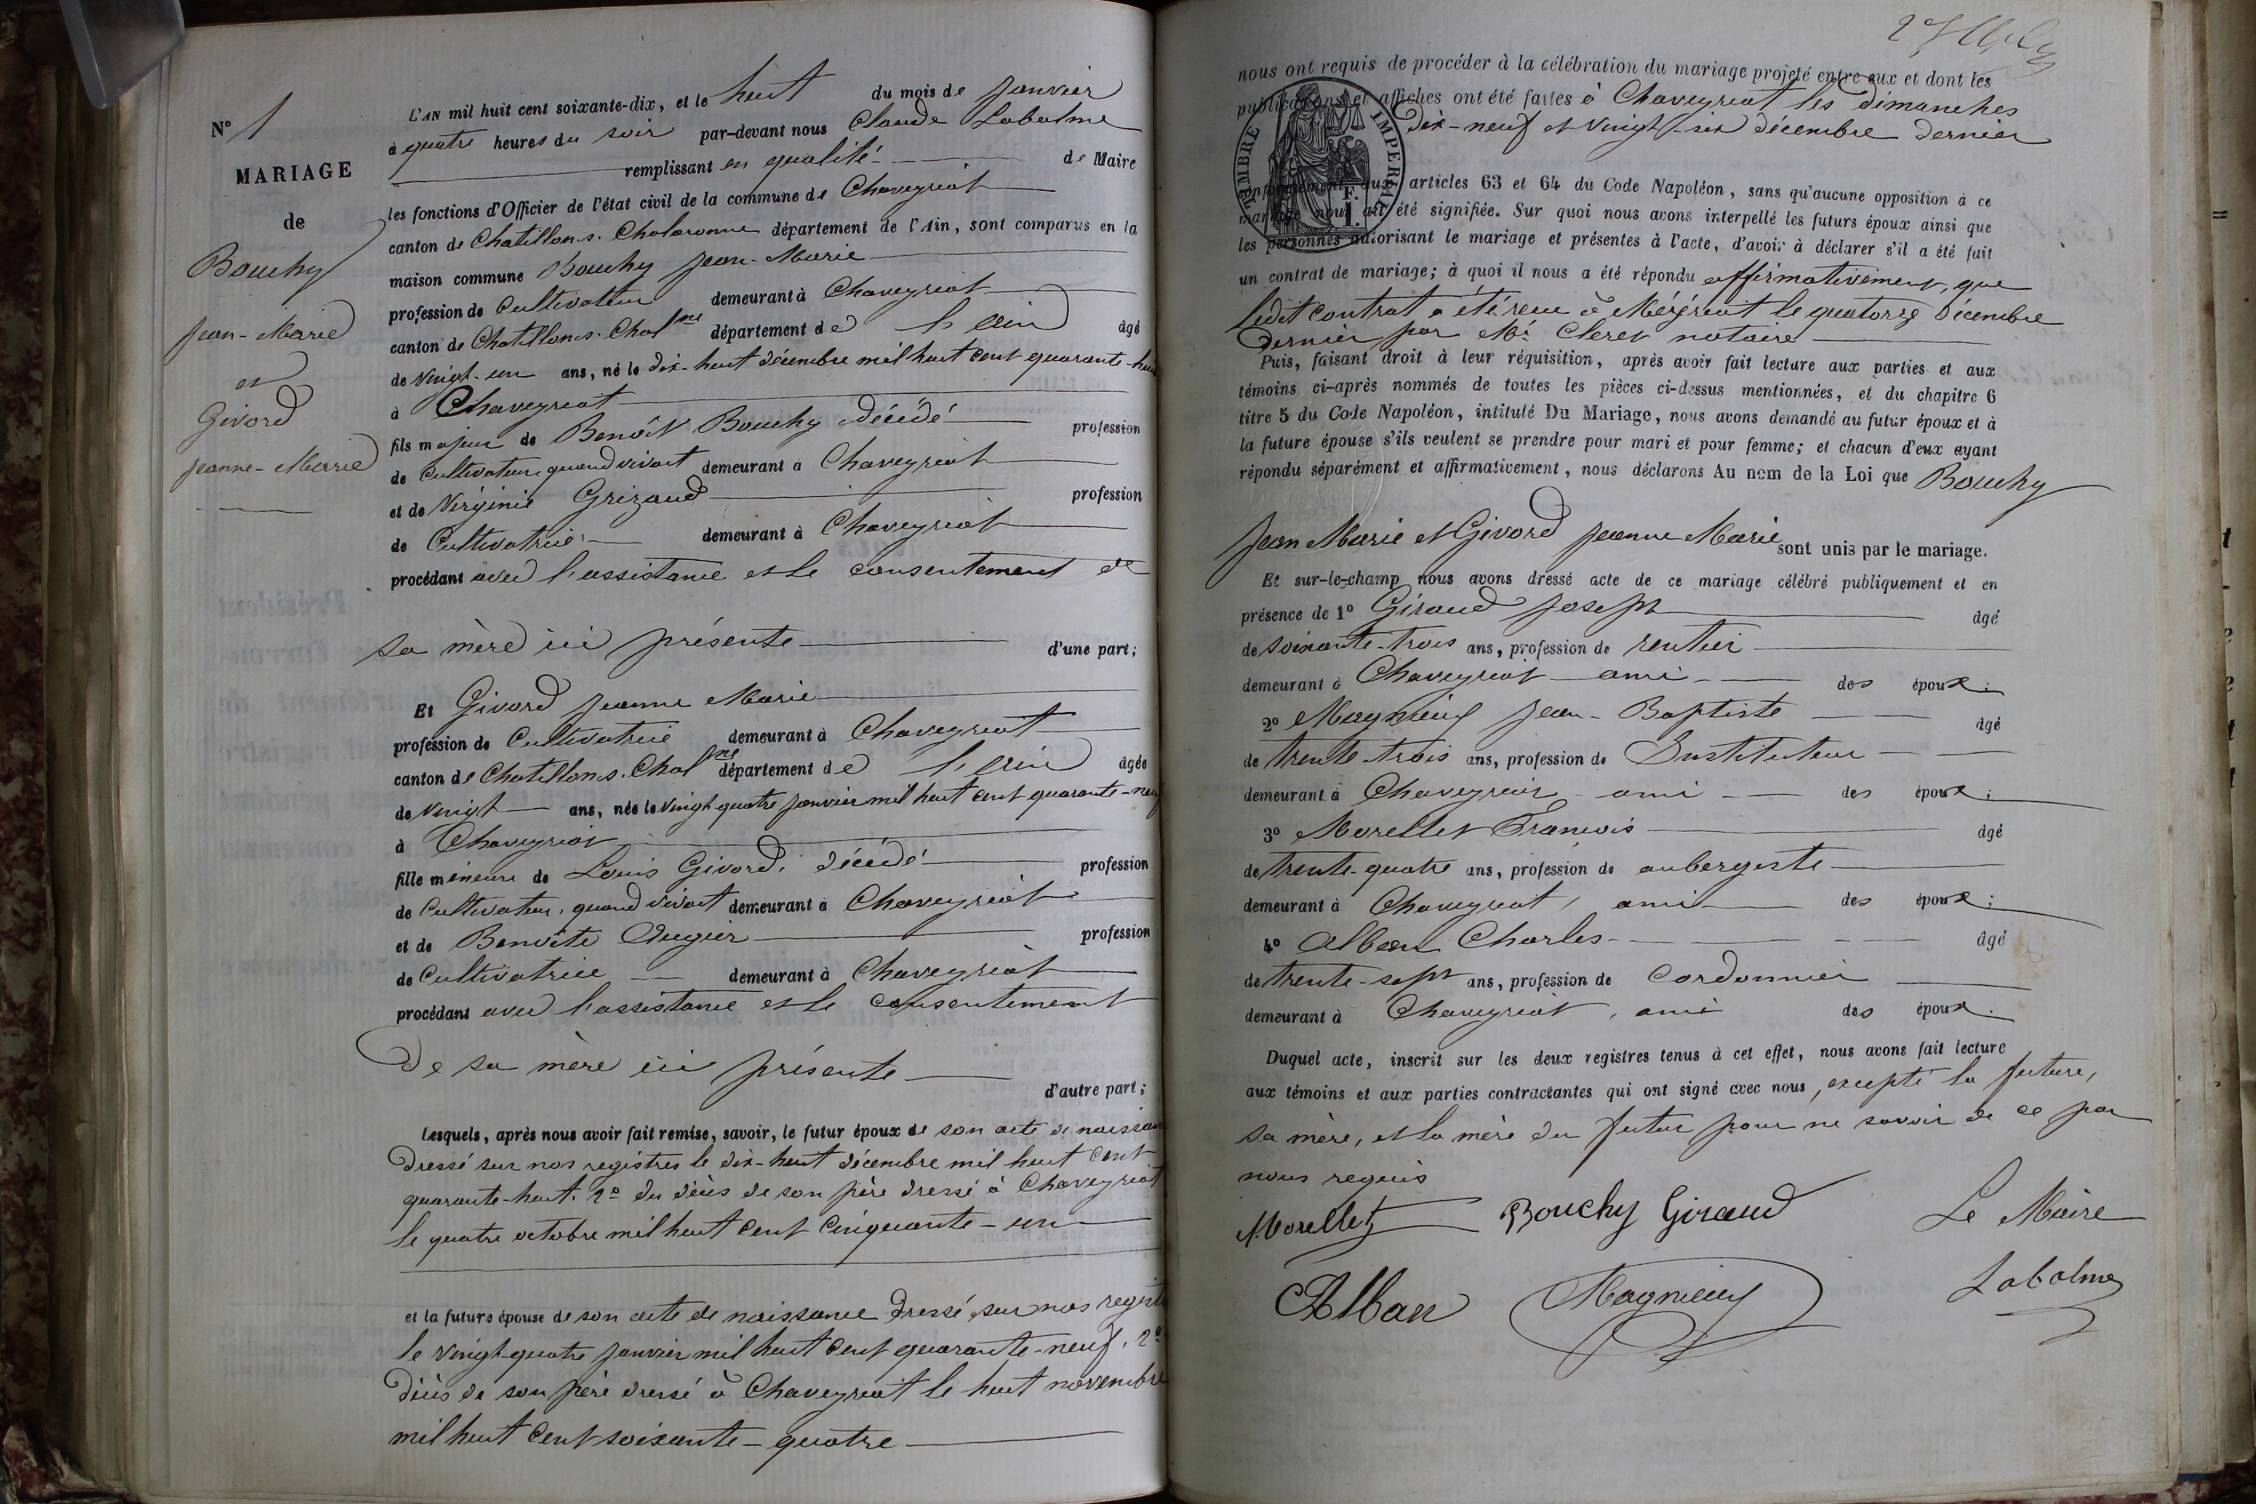 N° 1
MARIAGE
de
Bouchy
Jean-Marie
et
Givord
Jeanne-Marie
L'AN mil huit cent soixante-dix, et le huit du mois de Janvier
à quatre heures du soir par-devant nous Claude Labalme
remplissant en qualité de Maire
les fonctions d'Officier de l'état civil de la commune de Chaveyriat
canton de Chatillon s. Chalaronne département de l'Ain, sont comparus en la
maison commune Bouchy Jean-Marie
profession de Cultivateur demeurant à Chaveyriat
canton de Chatillon s. Chalne département de l'Ain âgé
de vingt-un ans, né le dix-huit décembre mil huit cent quarante-huit
à Chaveyriat
fils majeur de Benoît Bouchy décédé profession
de Cultivateur quand vivait demeurant à Chaveyriat
et de Virginie Grizaud profession
de Cultivatrice demeurant à Chaveyriat
procédant avec l'assistance et le consentement de
sa mère ici présente d'une part;
Et Givord Jeanne Marie
profession de Cultivatrice demeurant à Chaveyriat
canton de Chatillon s. Chalne département de l'Ain âgée
de vingt ans, née le vingt quatre janvier mil huit cent quarante-neuf
à Chaveyriat
fille mineure de Louis Givord, décédé profession
de Cultivateur, quand vivait demeurant à Chaveyriat
et de Benoîte Augier profession
de Cultivatrice demeurant à Chaveyriat
procédant avec l'assistance et le consentement
de sa mère ici présente
d'autre part;
Lesquels, après nous avoir fait remise, savoir, le futur époux de son acte de naissan
dressé sur nos registres le dix-huit décembre mil huit cent
quarante-huit. 2° du décès de son père dressé à Chaveyriat
le quatre octobre mil huit cent cinquante-un
et la future épouse de son acte de naissance dressé sur nos regist
le vingt quatre janvier mil huit cent quarante-neuf. 2°
décès de son père dressé à Chaveyriat le huit novembre
mil huit cent soixante-quatre
nous ont requis de procéder à la célébration du mariage projeté entre eux et dont les
publications et affiches ont été faites à Chaveyriat les dimanches
dix-neuf et vingt-six décembre dernier
TIMBRE IMPERIAL
conformément aux articles 63 et 64 du Code Napoléon, sans qu'aucune opposition à ce
mariage nous ait été signifiée. Sur quoi nous avons interpellé les futurs époux ainsi que
les personnes autorisant le mariage et présentes à l'acte, d'avoir à déclarer s'il a été fait
un contrat de mariage; à quoi il nous a été répondu affirmativement, que
ledit contrat a été reçu à Mézériat le quatorze décembre
dernier, par Me. Cleret notaire
Puis, faisant droit à leur réquisition, après avoir fait lecture aux parties et aux
témoins ci-après nommés de toutes les pièces ci-dessus mentionnées, et du chapitre 6
titre 5 du Code Napoléon, intitulé Du Mariage, nous avons demandé au futur époux et à
la future épouse s'ils veulent se prendre pour mari et pour femme; et chacun d'eux ayant
répondu séparément et affirmativement, nous déclarons Au nom de la Loi que Bouchy
Jean Marie et Givord Jeanne Marie sont unis par le mariage.
Et sur-le-champ nous avons dressé acte de ce mariage célébré publiquement et en
présence de 1° Giraud Joseph âgé
de soixante-trois ans, profession de rentier
demeurant à Chaveyriat ami des époux;
2° Magnieny Jean-Baptiste âgé
de trente trois ans, profession de Instituteur
demeurant à Chaveyriat ami des époux;
3° Morellet François âgé
de trente-quatre ans, profession de aubergiste
demeurant à Chaveyriat, ami des époux;
4° Alban Charles âgé
de trente-sept ans, profession de Cordonnier
demeurant à Chaveyriat, ami des époux.
Duquel acte, inscrit sur les deux registres tenus à cet effet, nous avons fait lecture
aux témoins et aux parties contractantes qui ont signé avec nous, excepté la future,
sa mère, et la mère du futur pour ne savoir de ce par
nous requis
Morellet Bouchy Giraud Le Maire
Alban Magnieny Labalme